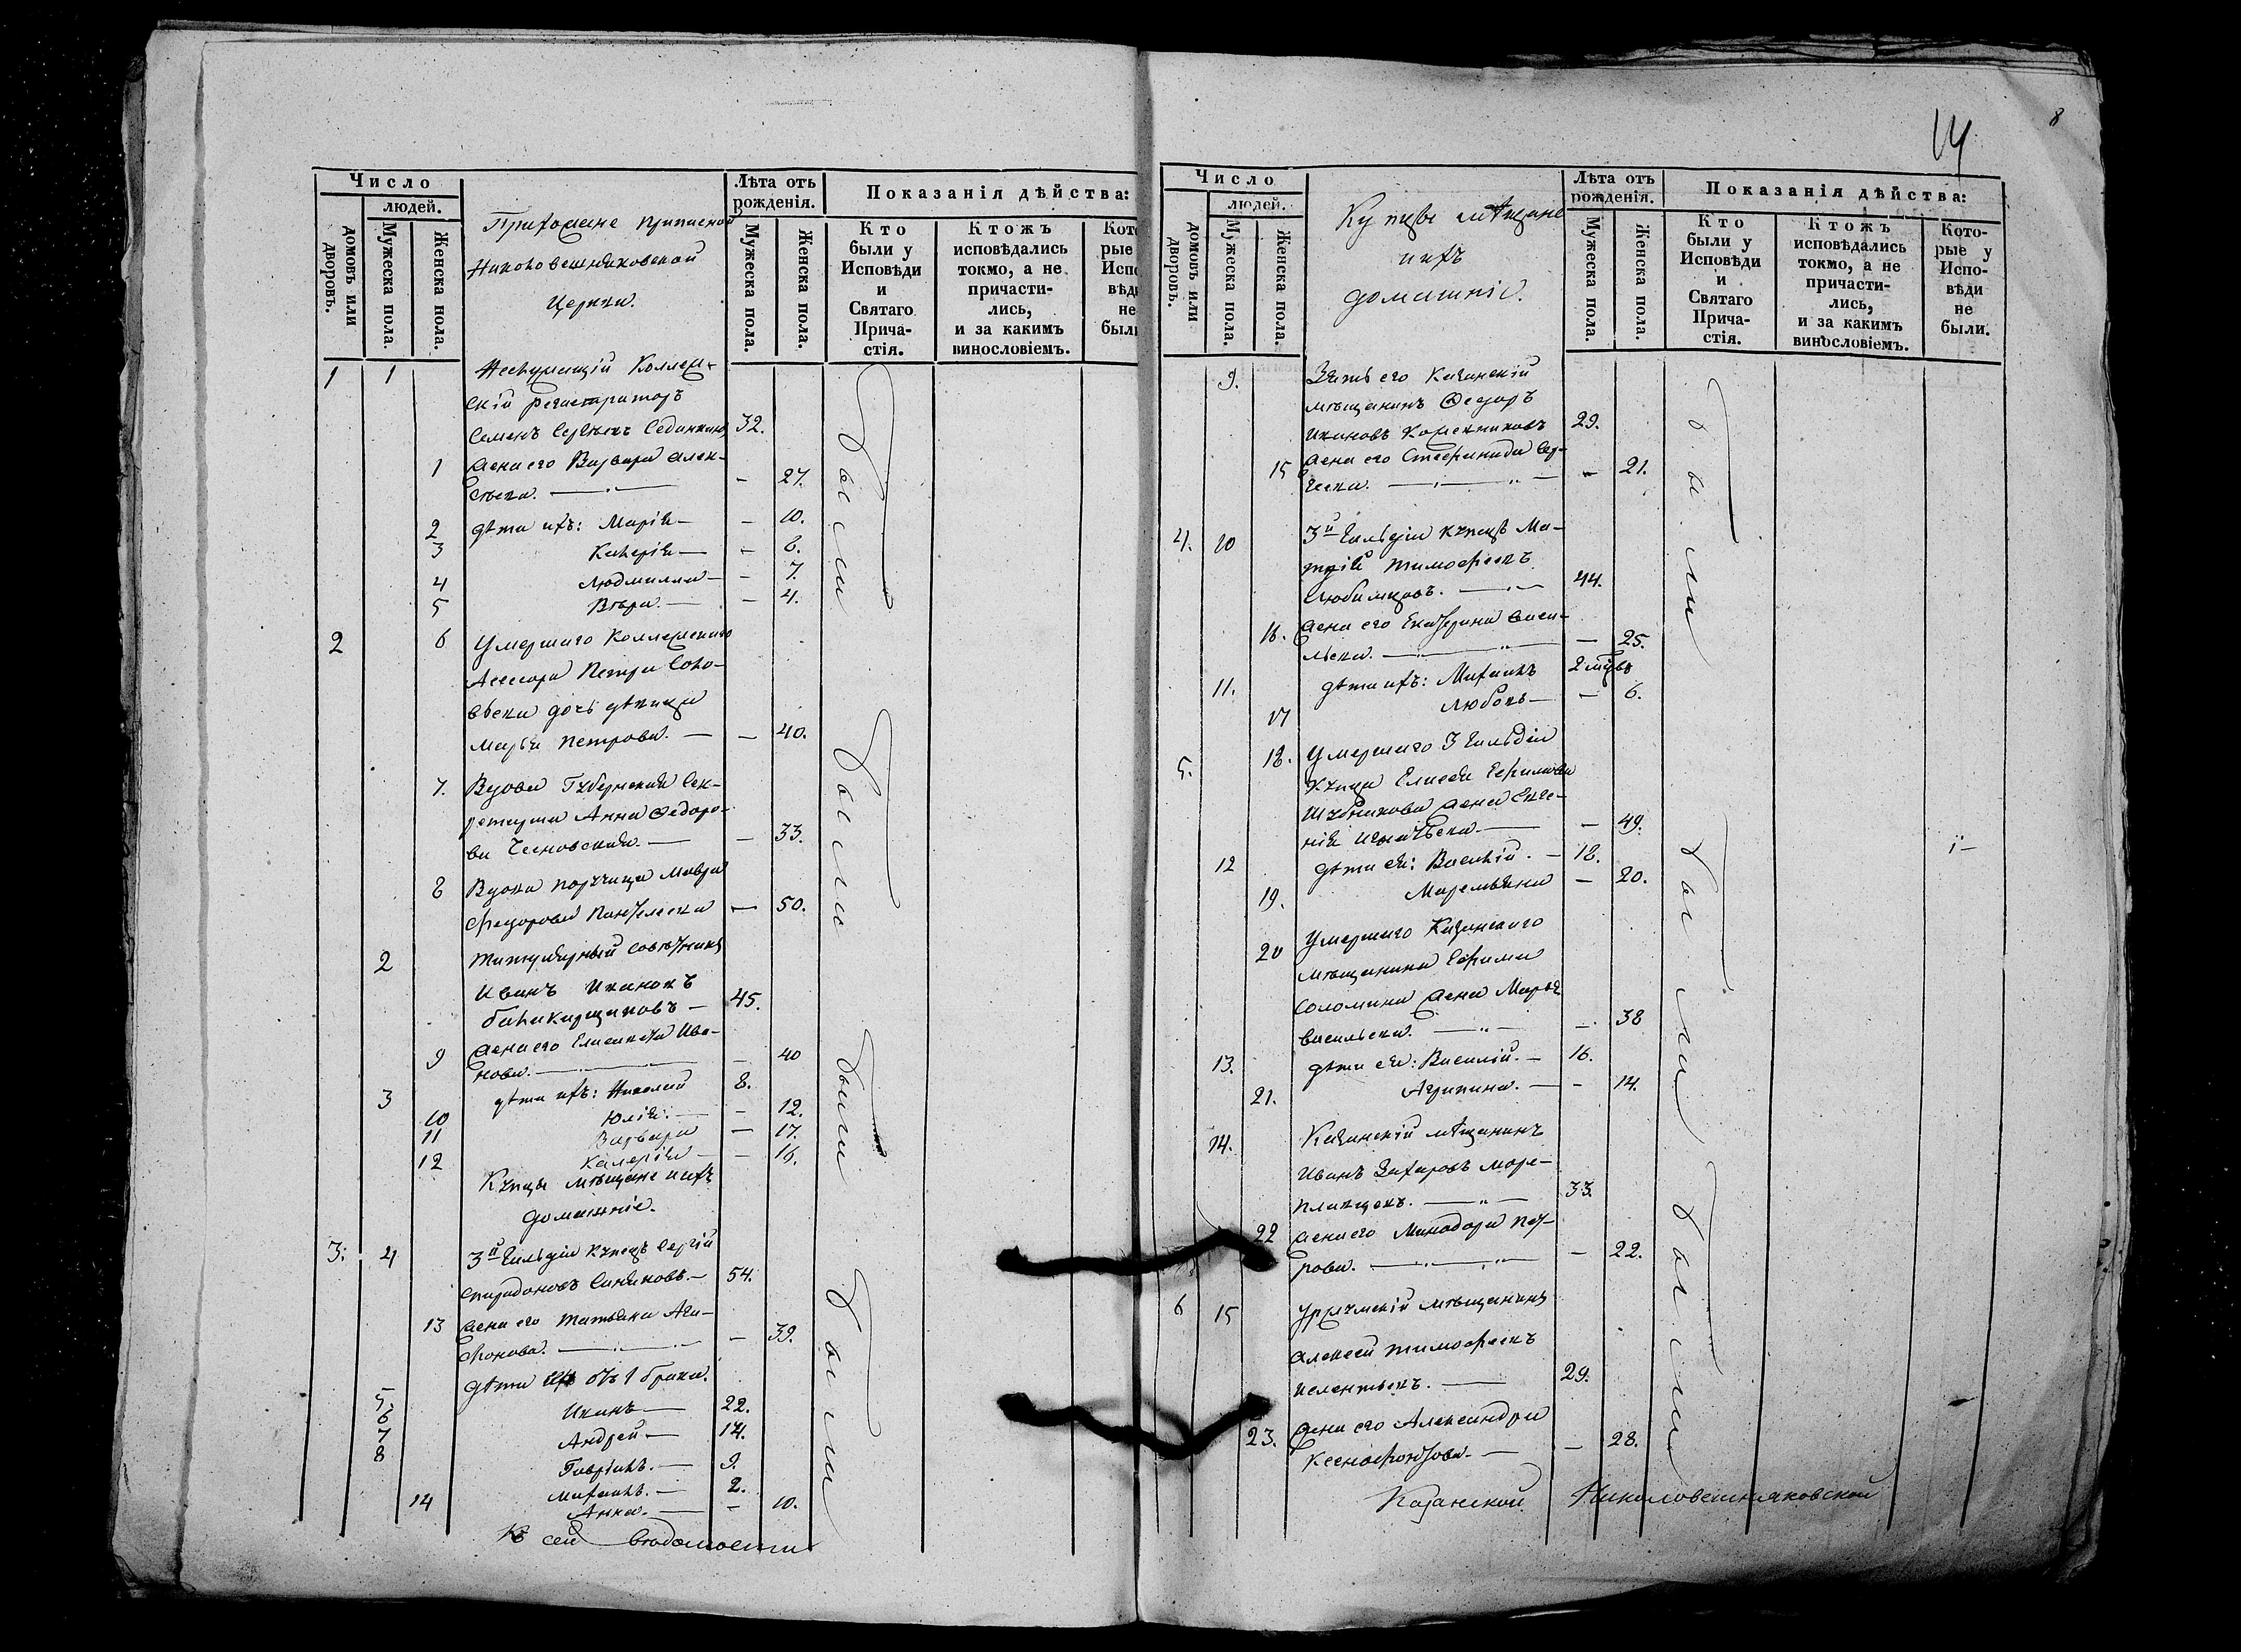 Число
людей.
домовъ или дворовъ.
Мужеска пола.
Женска пола.
Прихожане приписной
Николовешняковской
Церкви.
Лѣта отъ рожденія.
Мужеска пола.
Женска пола.
Показанія дѣйства:
Кто были у Исповѣди и Святаго Прича- стія.
Ктожъ исповѣдались токмо, а не причасти- лись, и за какимъ винословіемъ.
1 1 Неслужащій Коллеж-
скій регистраторъ
Семенъ Сергѣевъ 32.
1 жена его Варвара Алек-
сѣева. — - 27.
2 дѣти ихъ: Марія — - 10.
3 Калерія — - 8.
4 Людмилла — - 7.
5 Вѣра. — - 4.
2 6 Умершаго Коллежскаго
Асессора Петра Соло-
вьева дочь дѣвица
Марья Петрова. — - 40.
7. Вдова Губернская Сек-
ретарша Анна Федоро-
ва — - 33.
8 Вдова поручица Мавра
Федорова Пантелеева — 50.
2 Титулярный Совѣтникъ
Иванъ Ивановъ
Балакирщиковъ — 45.
9 жена его Елисавета Ива-
нова. — - 40
3 дѣти ихъ: Николай 8.
10 Юлія. — - 12.
11 Варвара — 17.
12 Калерія — - 16.
Купцы мѣщане и ихъ
домашніе.
3. 4 3й гильдіи купецъ Сергій
Спиридоновъ Синяковъ. — 54.
13 жена его Татьяна Ага-
фонова. — - 39.
дѣти отъ 1 брака.
5. Иванъ — 22.
6 Андрей — 14.
7 Гавріилъ. — 9.
8 Михаилъ. — 2.
14 Анна. — - 10.
были
были
были
были
Къ сей вѣдомости
14
8
Число
людей.
домовъ или дворовъ.
Мужеска пола.
Женска пола.
Купцы мѣщане
и ихъ
домашніе.
Лѣта отъ рожденія.
Мужеска пола.
Женска пола.
Показанія дѣйства:
Кто были у Исповѣди и Святаго Прича- стія.
Ктожъ исповѣдались токмо, а не причасти- лись, и за какимъ винословіемъ.
Кото- рые у Испо- вѣди не были.
9. Зять его Казанскій
мѣщанинъ Федоръ
Ивановъ Кожевниковъ 29.
15 жена его Стефанида Сер-
геева. — - 21.
4. 10 3й гильдіи купецъ Ма-
Тимофеевъ
Любимцовъ. — 44.
16. жена его Екатерина Васи-
льева. — - 25.
11. дѣти ихъ: Михаилъ 2 мцвъ
17 Любовь — - 6.
5. 18. Умершаго 3 гильдіи
купца Елисея Ефимова
жена Евге-
нія Игнатьева — - 49.
12 дѣти ея: Василій. — 18.
19. Маремьяна - 20.
20 Умершаго Казанскаго
мѣщанина Ефима
Соломина жена Марья
Васильева. — - 38
13. дѣти ея: Василій. — 16.
21. Агрипина. — - 14.
14. Казанскій мѣщанинъ
Иванъ Захаровъ Море-
плавцевъ. — 33.
22 жена его Минодора Пет-
рова. — - 22.
6 15 Уржумскій мѣщанинъ
Алексей Тимофеевъ
29.
23. жена его Александра
Ксенофонтова. — - 28.
были
были
были
Казанской Николовешняковской